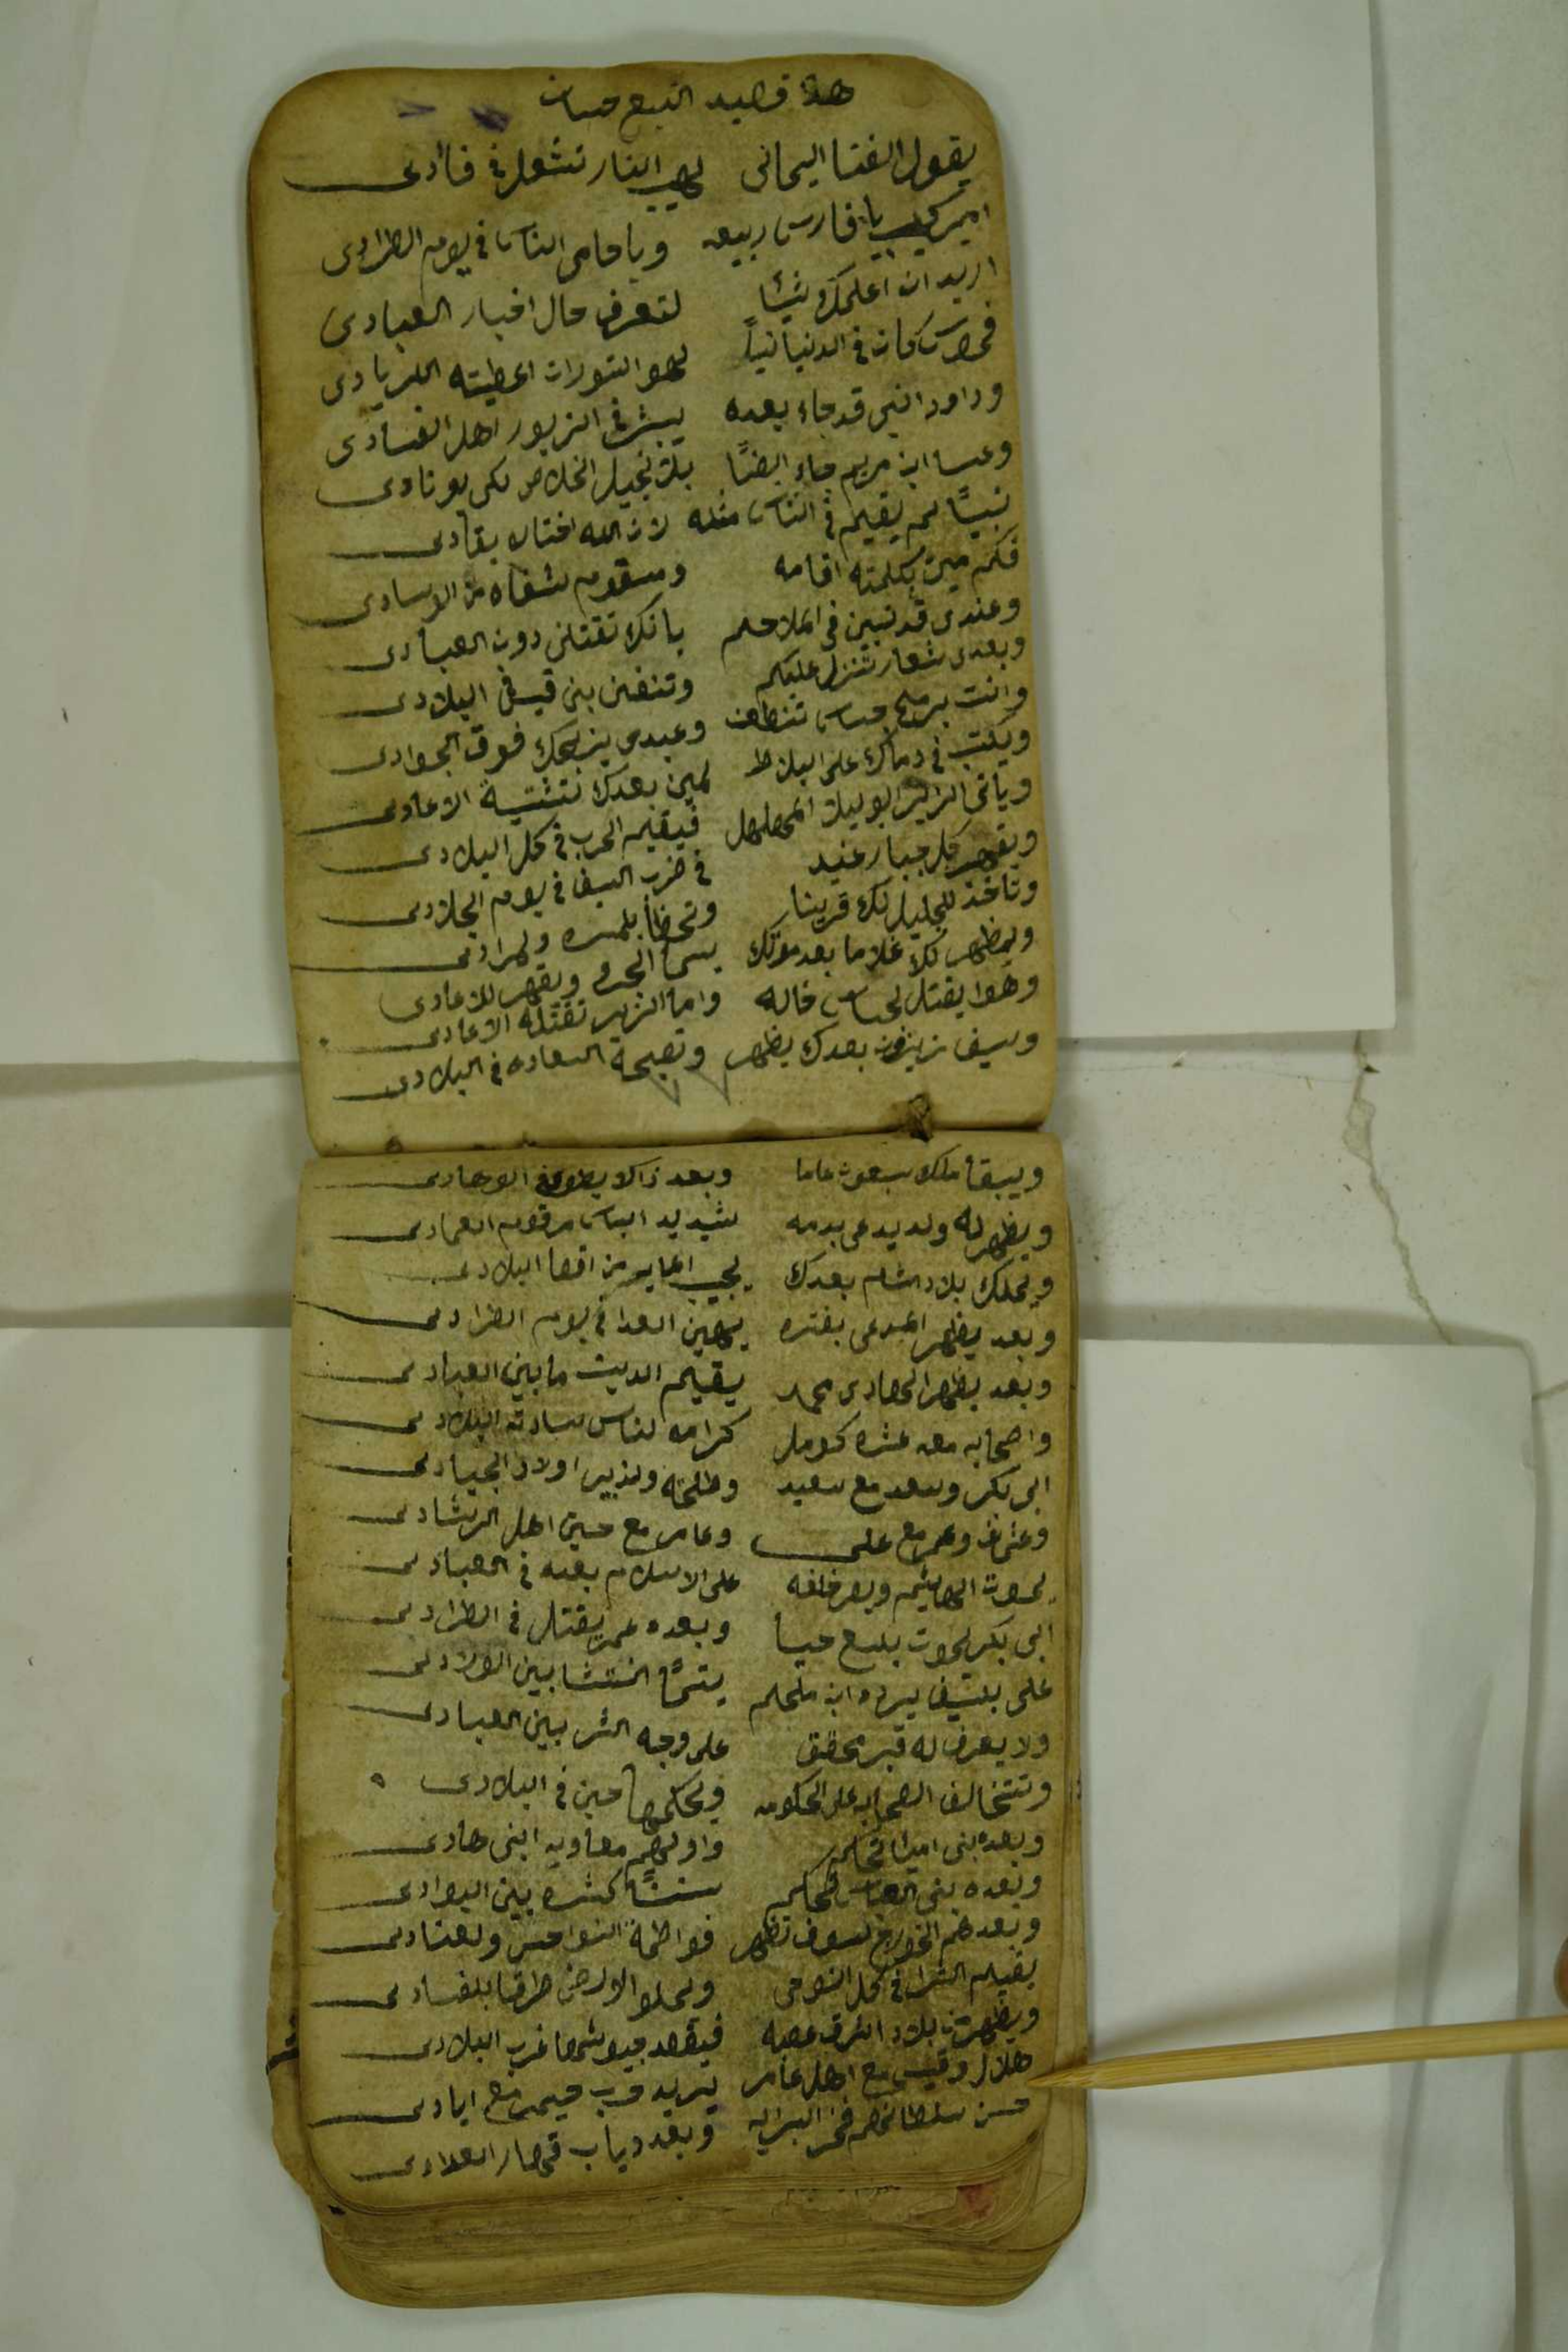 هذا قصيد التبع حسان
يقول الفتا اليماني لهيب النار تشعل في فأادي
امير كليب يا فارس ربيعه ويا حامي الناس في يوم الطرادي
اريد ان اعلمك شيئا لتعرف حال اخبار العبادي
كان في الدنيا نبياً لهو التورات اعطيته
وداود النبي قد جاء بعده يبشر في الزبور اهل الفسادي
وعسا ابن مريم جاء ايضًا الخلاص لكي يو نادي
نبيًا لم يقيم في الناس مثله لان الله اختاره
فكم ميت بكلمته اقامه شفاه من الوسادي
وعندي قد تبين في الملاحم بانك تقتلني دون العبادي
وبعدي تنزل عليكم وتنفن بني قيس في البلادي
وانت برمح جساس تنطعن وعبدي يذبحك فوق الجوادي
ويكتب في دماك على البلاط لمين بعدك الاعادي
وياتي الزير ابو ليلا المهلهل فيقيم الحرب في كل البلادي
ويقهر كل جبار عنيد في ضرب السيف في يوم الجلادي
وتاخذ للجليل لك قرينا وتحظا بلمسره ولمرادي
ويظهر لك غلاما بعد موتك يسما الجرو ويقهر للاعادي
وهوا يقتل لجساس خاله واما الزير تقتله الاعادي
وسيف بعدك يظهر السعاده في البلادي
ويبقا ملك سبعون عاما وبعد ذالا يطوى في الوهادي
ويظهر له ولد يدعى بدمه شديد الباس مرقوم العمادي
ويملك بلاد الشام بعدك يجيب من اقصا البلادي
وبعد يظهر المدعى بفتره يهين العدا في يوم الطرادي
وبعد يظهر الهادي محمد يقيم الدين ما بين العبادي
واصحابه معه عشره كومل كرامه لناس سادته البلادي
ابي بكر وسعد مع سعيد وطلحه ولزبير اولاد الجيادي
وعثمان وعمر مع علي وعامر مع حسين اهل الرشادي
يموت الهاشم على الاسلام بعده في العبادي
ابي بكر يموت بلسع حيا وبعده عمر يقتل في الطرادي
علي بلسيف يرده ابن ملجم بين الولادي
ولا يعرف له قبر محقق على وجه الثر بين العبادي
وتتخالف الصحابه على الحكومه ويحكمها حين في البلادي
وبعده بني اميا تحكم واولهم معاويه ابني هادي
وبعده بني العباس تحكم سننًا كثره بين البوادي
وبعدهم الخورج لسوف تظهر فواطمة
يقيم الشرا في كل النوحي ويملو الارض طرقا بلفسادي
ويظهر من بلاد الشرق عصبه فيقصد جيوشها غرب البلادي
هلال وقيس مع اهل عامر تريد حرب حيمير مع ايادي
حسن سلطانهم فخر البرايه وبعد دياب قهار العلادي